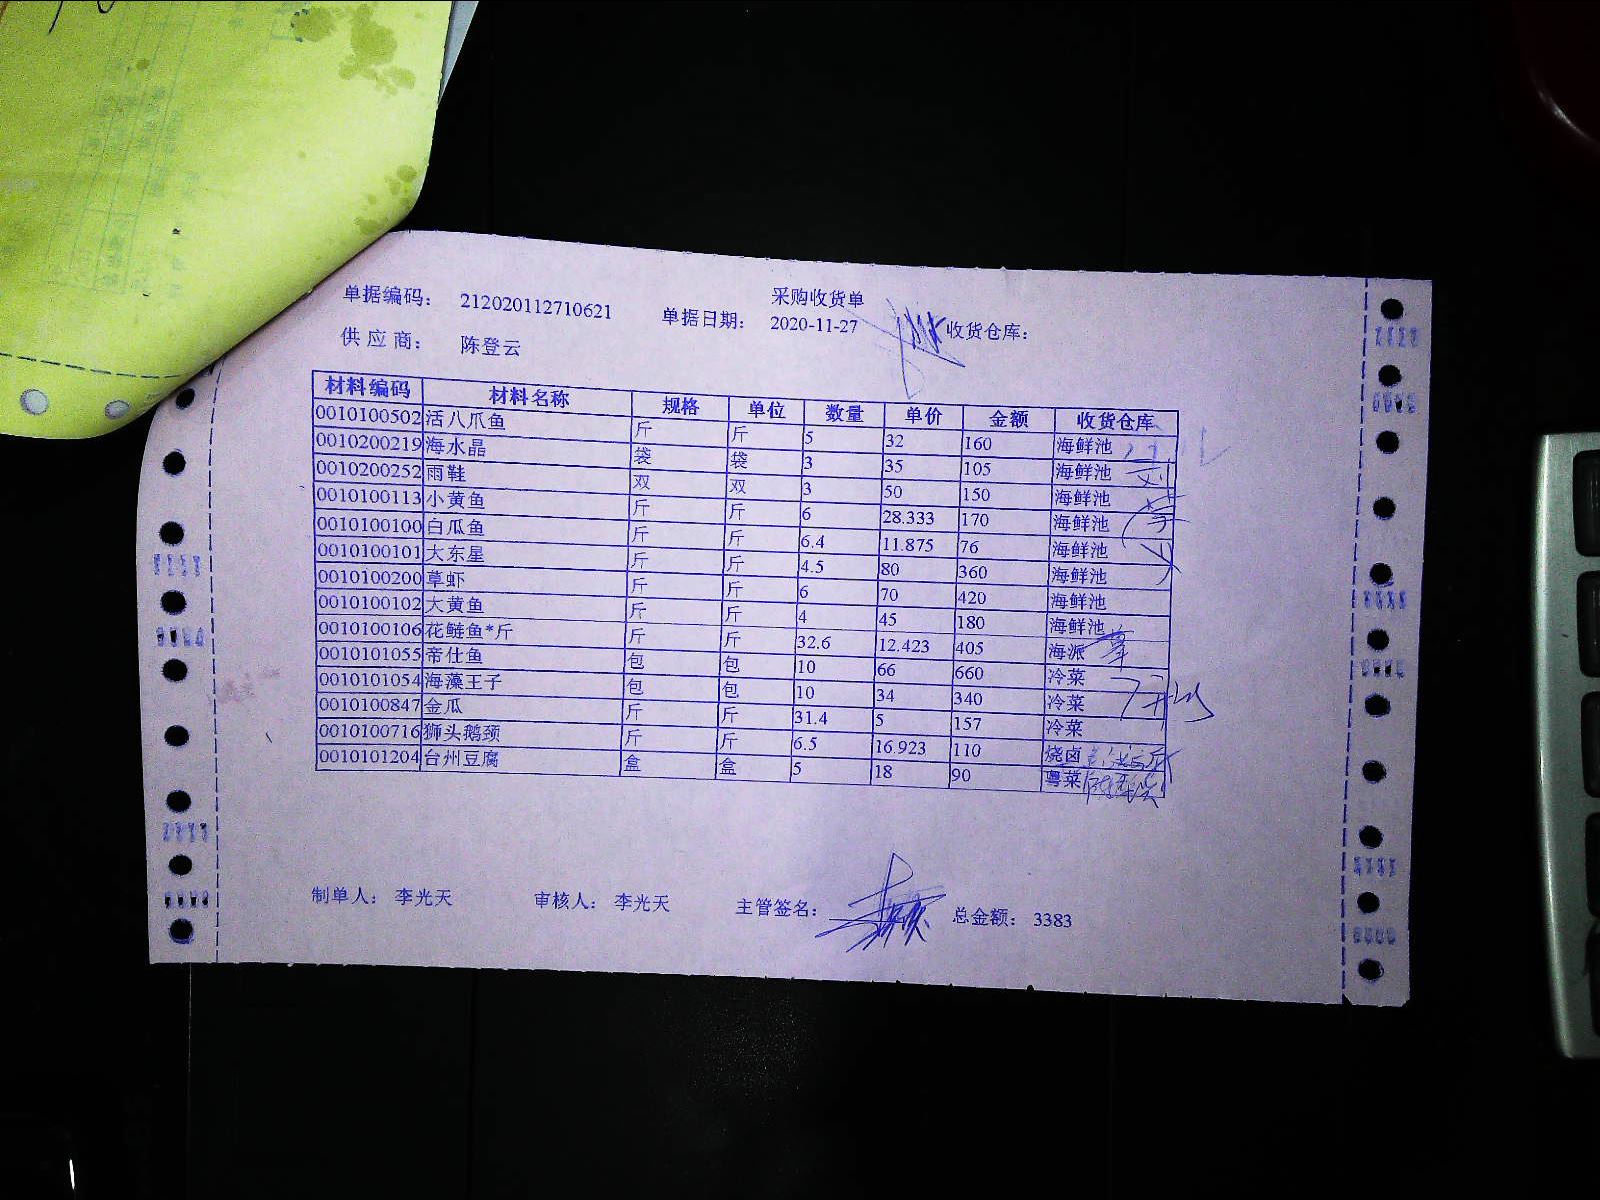 采购收货单
单据编码： 212020112710621 单据日期： 2020-11-27 收货仓库：
供应商： 陈登云
材料编码 材料名称 规格 单位 数量 单价 金额 收货仓库
0010100502 活八爪鱼 斤 斤 5 32 160 海鲜池
0010200219 海水晶 袋 袋 3 35 105 海鲜池
0010200252 雨鞋 双 双 3 50 150 海鲜池
0010100113 小黄鱼 斤 斤 6 28.333 170 海鲜池
0010100100 白瓜鱼 斤 斤 6.4 11.875 76 海鲜池
0010100101 大东星 斤 斤 4.5 80 360 海鲜池
0010100200 草虾 斤 斤 6 70 420 海鲜池
0010100102 大黄鱼 斤 斤 4 45 180 海鲜池
0010100106 花鲢鱼*斤 斤 斤 32.6 12.423 405 海派
0010101055 帝仕鱼 包 包 10 66 660 冷菜
0010101054 海藻王子 包 包 10 34 340 冷菜
0010100847 金瓜 斤 斤 31.4 5 157 冷菜
0010100716 狮头鹅颈 斤 斤 6.5 16.923 110 烧卤
0010101204 台州豆腐 盒 盒 5 18 90 粤菜
制单人： 李光天 审核人： 李光天 主管签名： 总金额： 3383